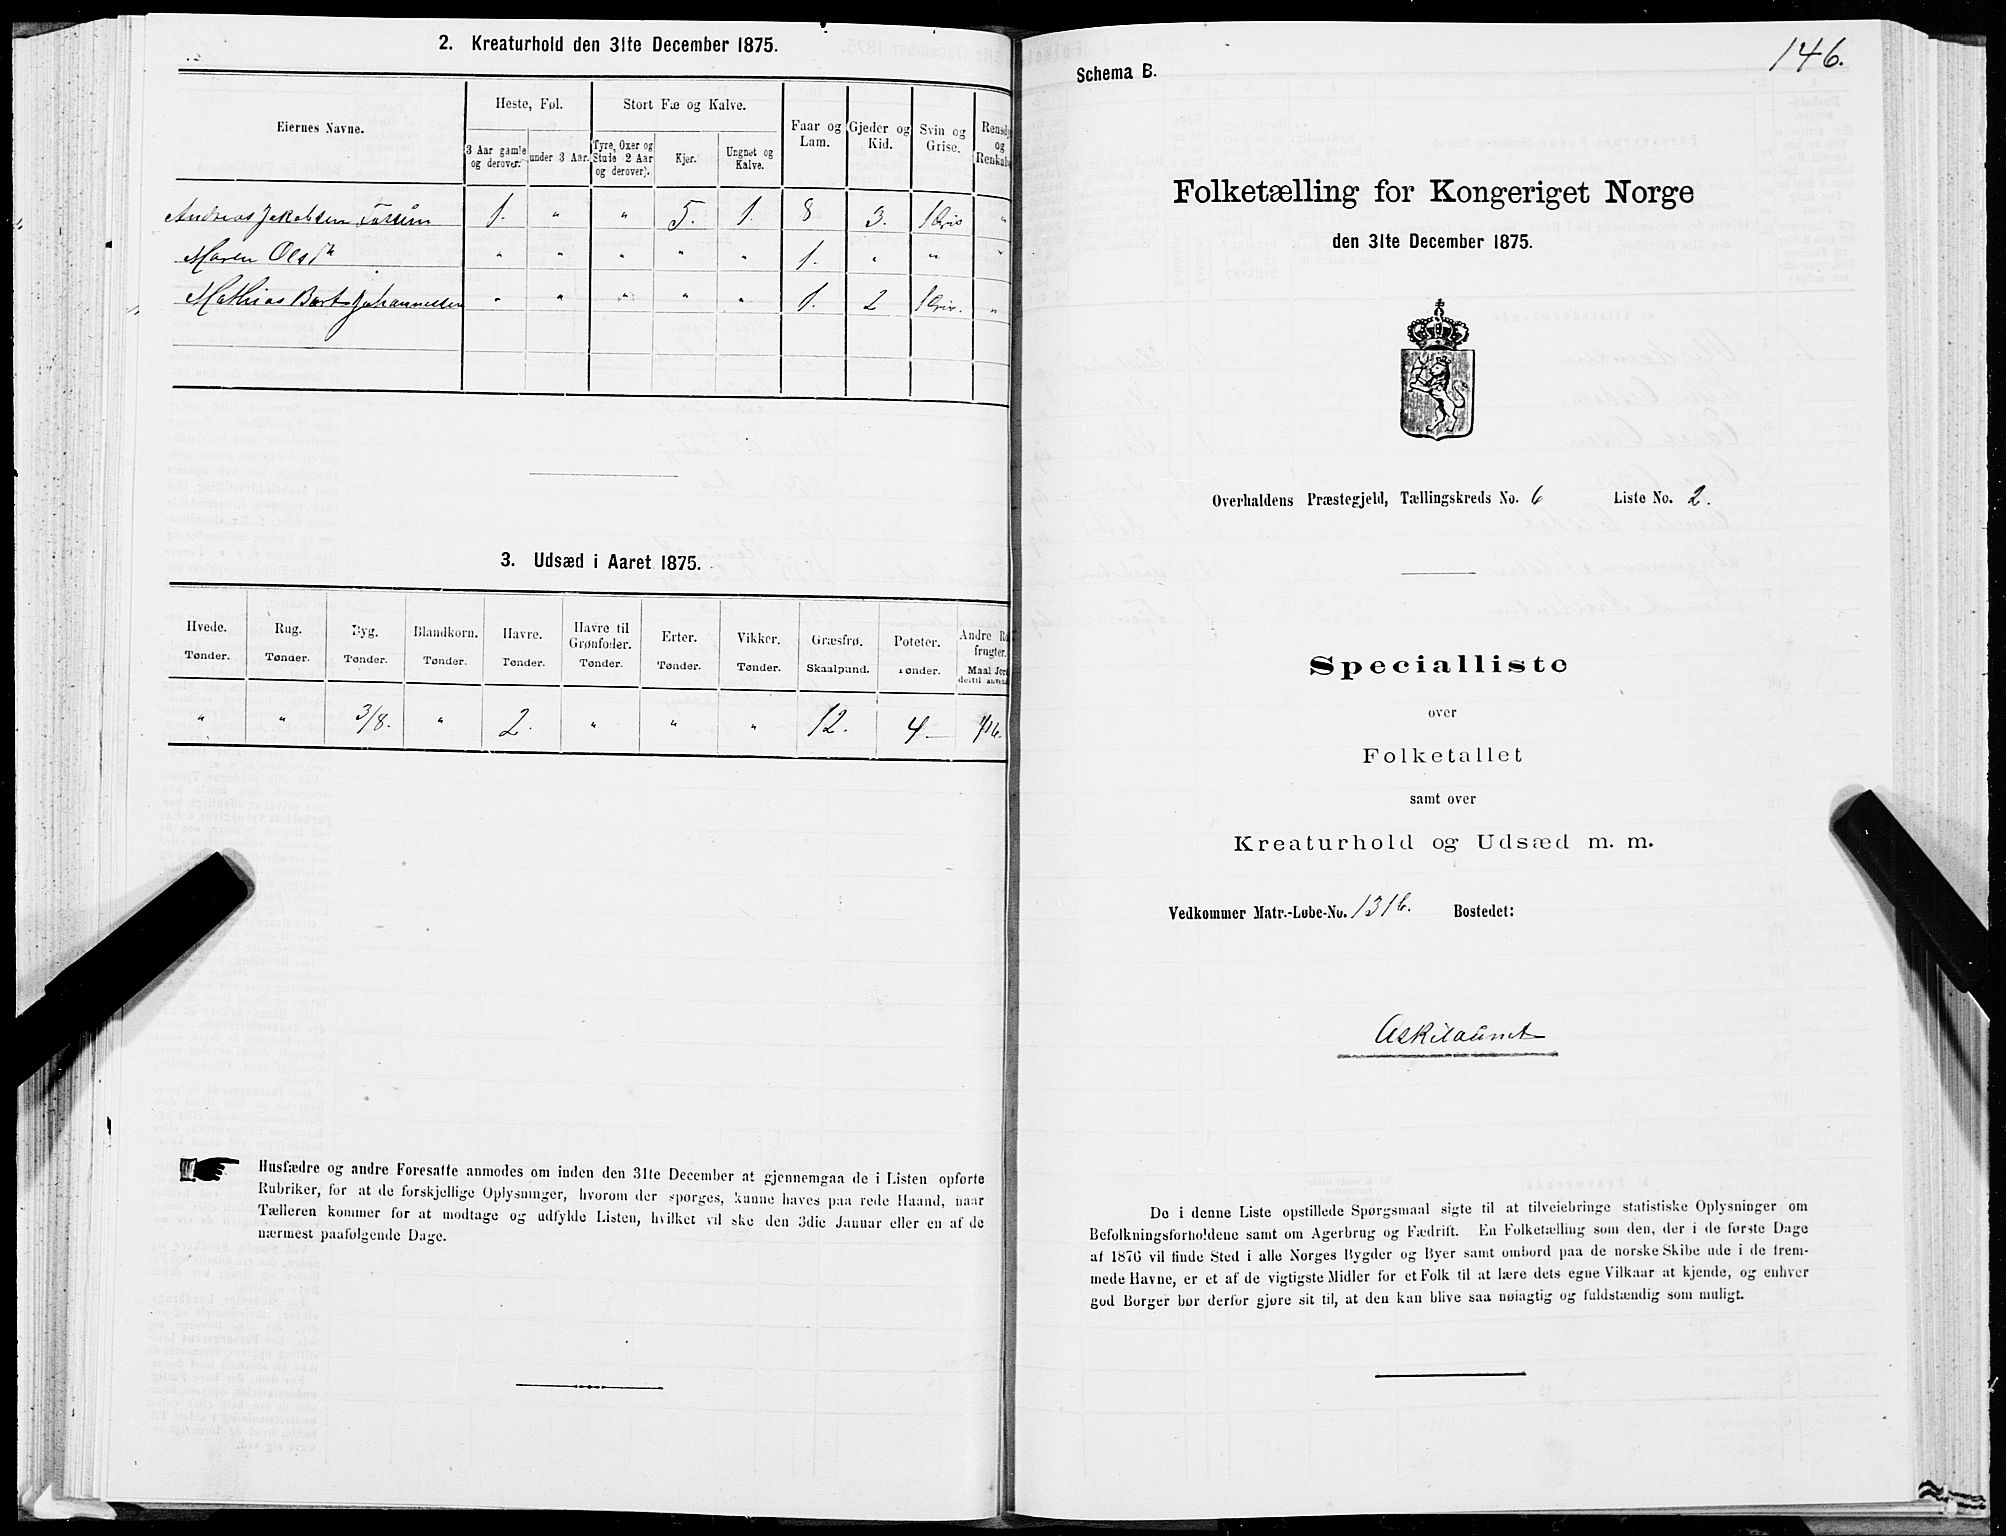 2. Kreaturhold den 31te December 1875.
Eiernes Navne.
Heste, Føl.
Stort Fæ og Kalve.
Faar og Lam.
Gjeder og Kid.
Svin og Grise.
Rensdyr og
3 Aar gamle og derover.
under 3 Aar.
Tyre, Oxer og Stude 2 Aar og derover).
Kjer.
Ungnet og Kalve.
Andreas Jakobsen Fossum 1. " " 5. 1. 8 3. 1 Gris "
Maren Olsdtr " " " " " 1. " " "
Mathias Bart Johannessen " " " " " 1. 2 1 Gris. "
3. Udsæd i Aaret 1875.
Hvede. Rug. Byg. Blandkorn. Havre. Havre til Grønfoder. Erter. Vikker. Græsfrø. Poteter. Andre
frugter.
Tønder. Tønder. Tønder. Tønder. Tønder. Tønder. Tønder. Tønder. Skaalpund. Tønder. Maal
" " 3/8. " 2. " " " 12. 4 1/16.
Husfædre og andre Foresatte anmodes om inden den 31te December at gjennemgaa de i Listen opførte
Rubriker, for at de forskjellige Oplysninger, hvorom der spørges, kunne haves paa rede Haand, naar
Tælleren kommer for at modtage og udfylde Listen, hvilket vil ske den 3die Januar eller en af de
nærmest paafølgende Dage.
146.
Schema B.
Folketælling for Kongeriget Norge
den 31te December 1875.
Overhaldens Præstegjeld, Tællingskreds No. 6 Liste No. 2.
Specialliste
over
Folketallet
samt over
Kreaturhold og Udsæd m. m.
Vedkommer Matr.-Løbe-No. 131b. Bostedet:
Askilaunet
De i denne Liste opstillede Spørgsmaal sigte til at tilveiebringe statistiske Oplysninger om
Befolkningsforholdene samt om Agerbrug og Fædrift. En Folketælling som den, der i de første Dage
af 1876 vil finde Sted i alle Norges Bygder og Byer samt ombord paa de norske Skibe ude i de frem-
mede Havne, er et af de vigtigste Midler for et Folk til at lære dets egne Vilkaar at kjende, og enhver
god Borger bør derfor gjøre sit til, at den kan blive saa nøiagtig og fuldstændig som muligt.